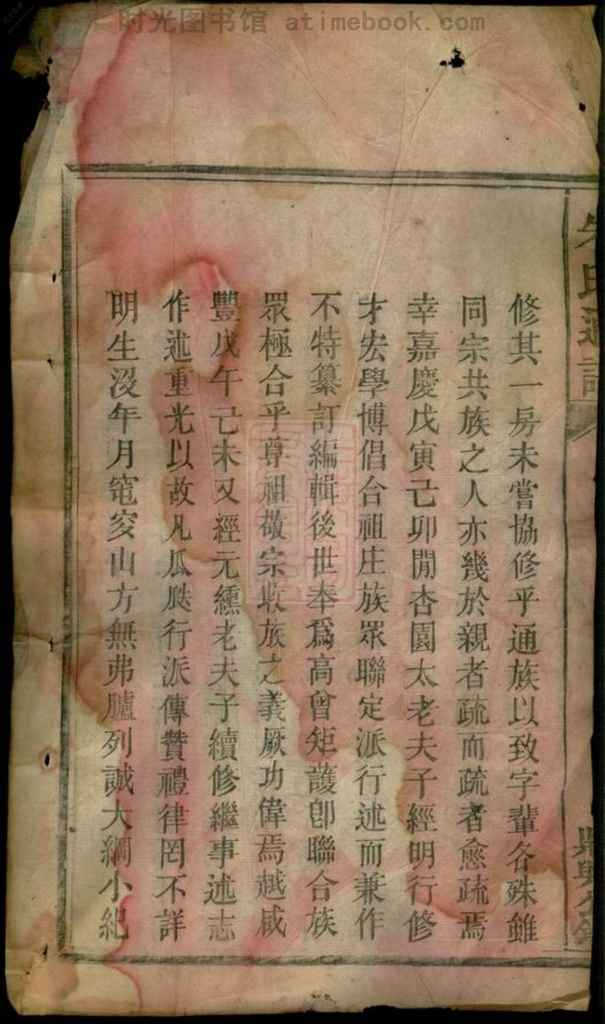 时光图书馆 atimebook.com
朱氏通譜
修其一房未嘗協修乎通族以致字輩各殊雖
同宗共族之人亦幾於親者疏而疏者愈疏焉
幸嘉慶戊寅己卯閒杏園太老夫子經明行修
才宏學博倡合祖庄族眾聯定派行述而兼作
不特纂訂編輯後世奉爲高曾矩護卽聯合族
眾極合乎尊祖敬宗收族之義厥功偉焉越咸
豐戊午己未又經元纁老夫子續修繼事述志
作述重光以故凡瓜瓞行派傳贊禮律罔不詳
明生沒年月窀穸山方無弗臚列誠大綱小紀